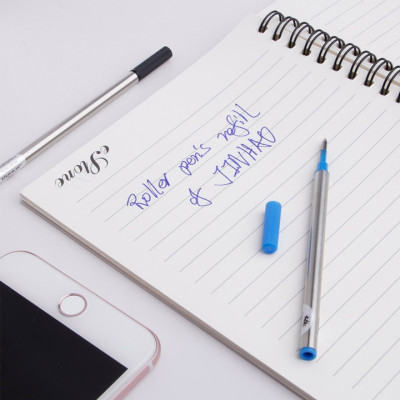 eStone
Roller pen's refill
of JINHAO